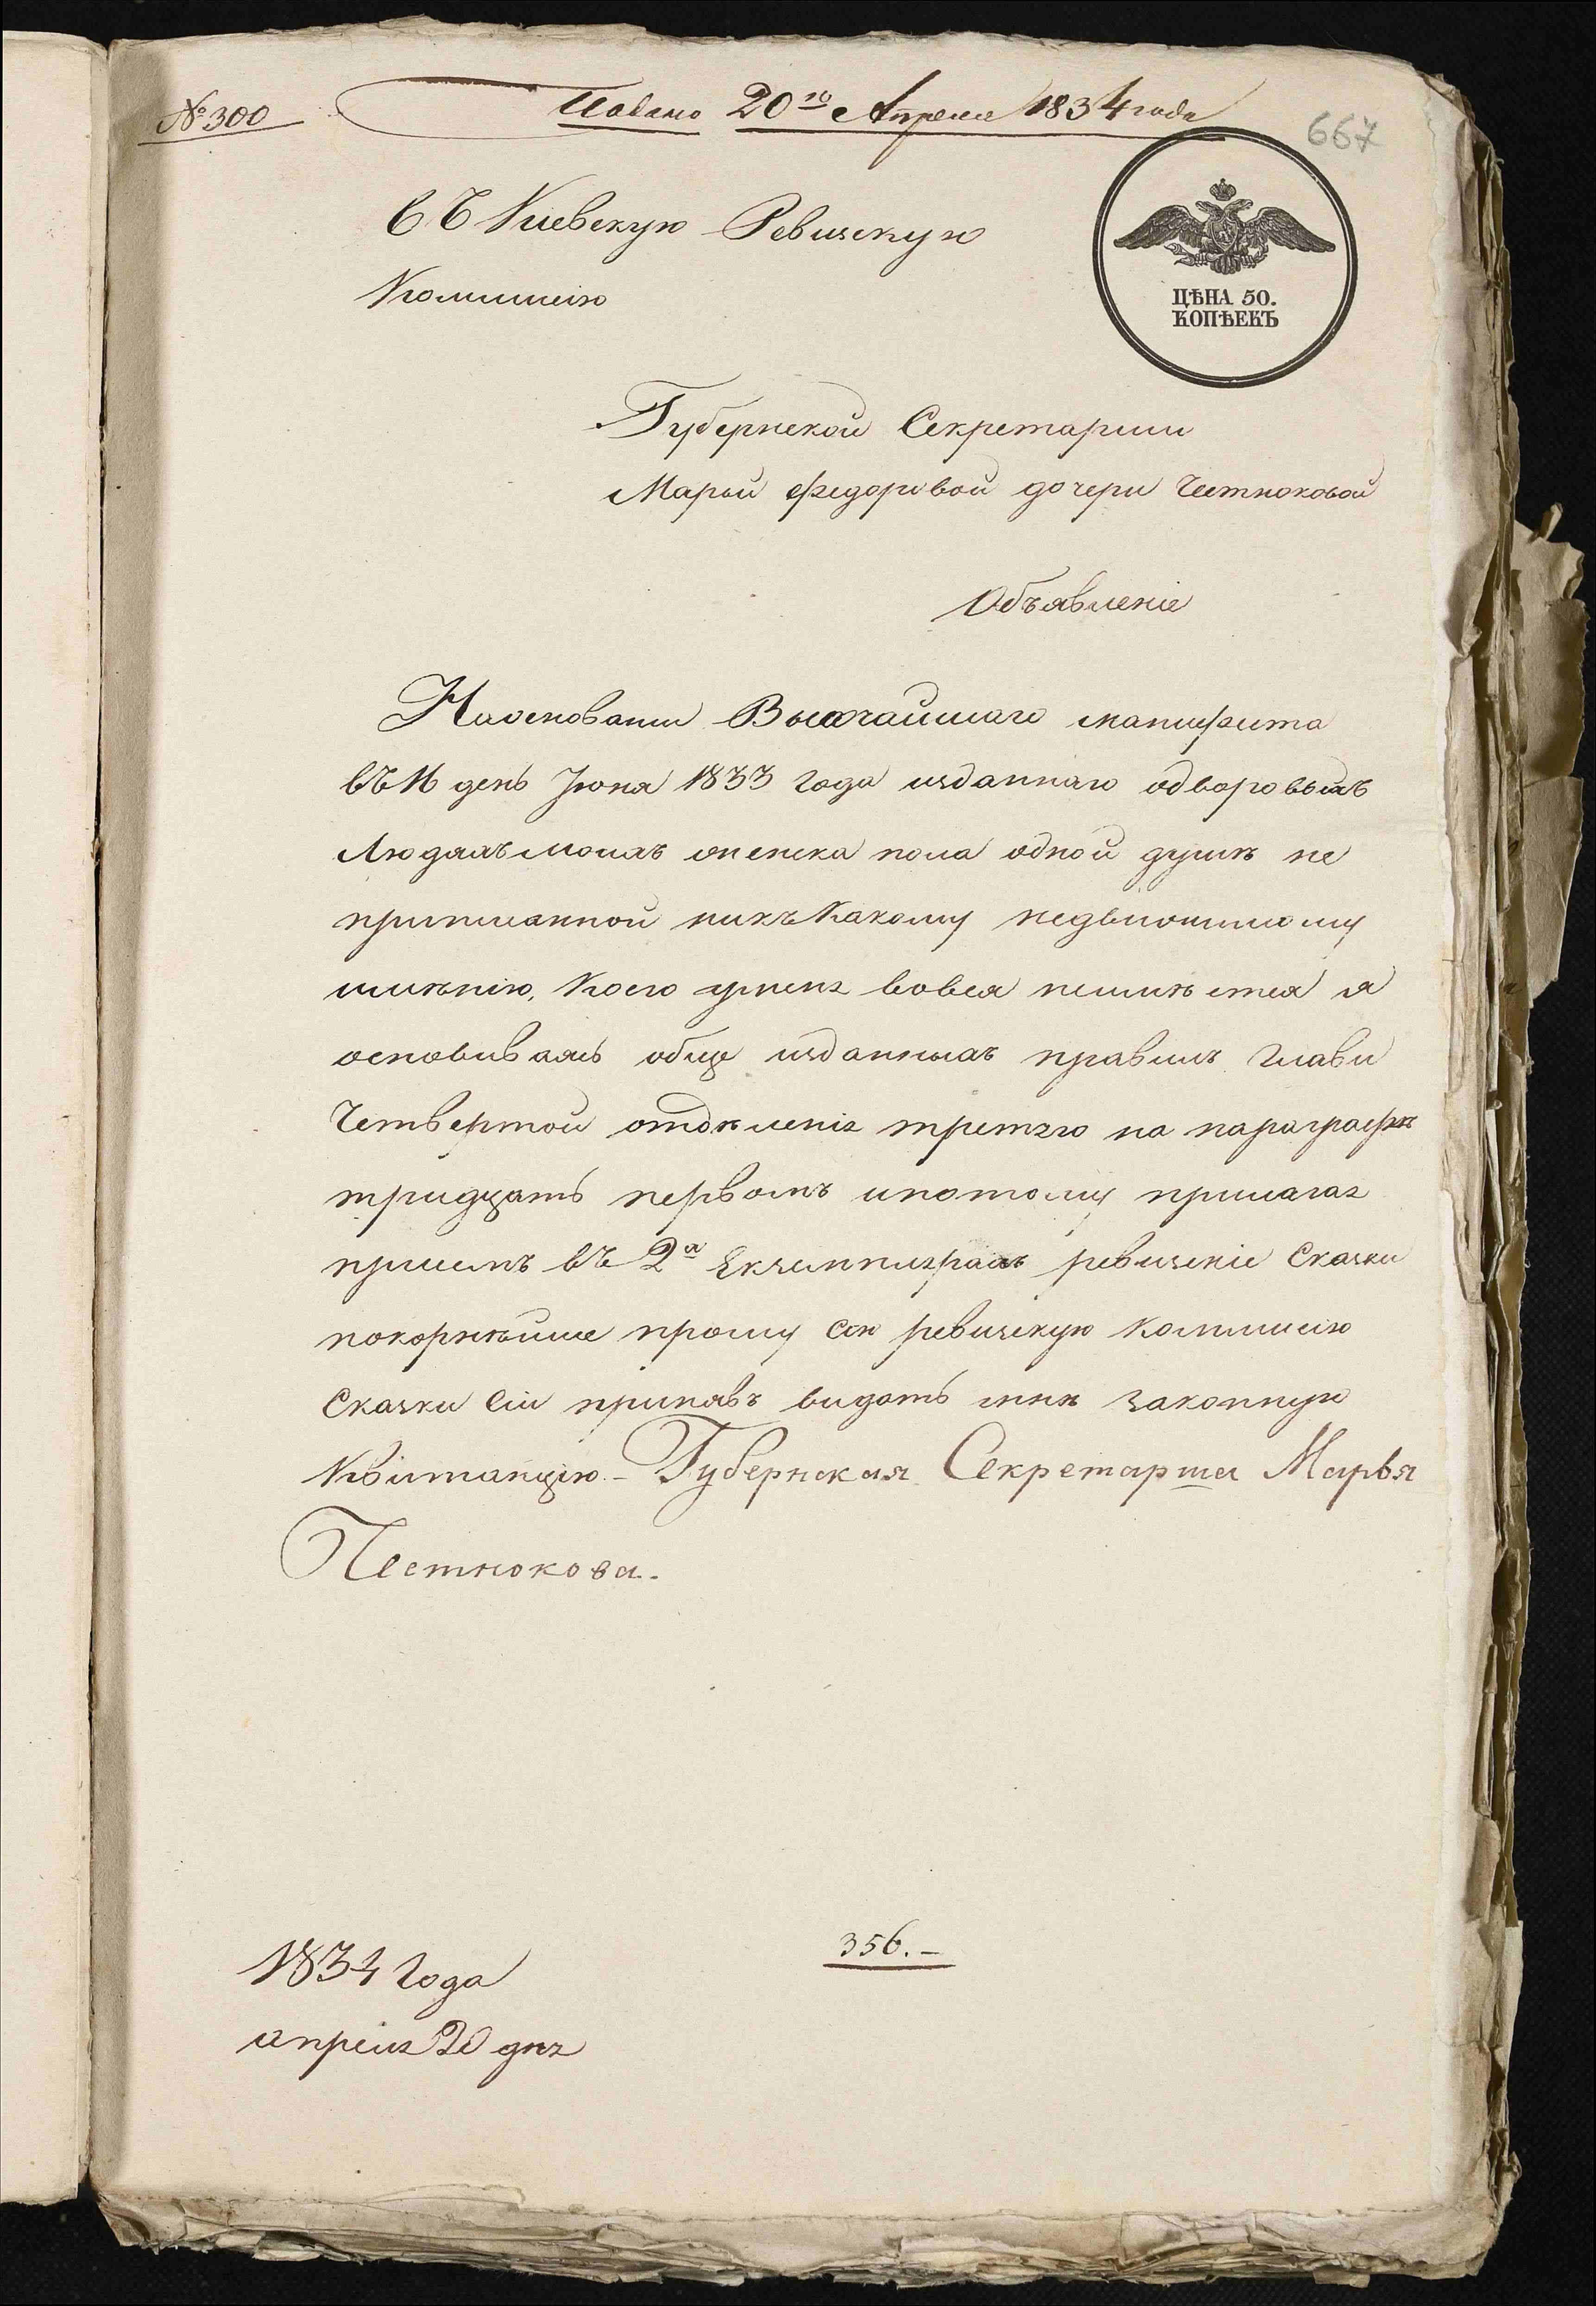 № 300
Подано 20го Апреля 1834 года
667
ВЪ Киевскую Ревизскую
Коммисію
ЦѢНА 50.
КОПѢЕКЪ
Губернской Секретарши
Марьи Федоровой дочери Честноковой
Объявленіе
Наоснованіи Высочайшаго манифеста
въ 16 день Іюня 1833 года изданнаго одворовыхъ
Людяхъ моихъ женска пола одной душѣ не
приписанной никъ Какому недвижимому
имѣнію, Коего уменя вовся неимѣется я
основиваясь обще изданныхъ правилъ Глави
Четвертой отдѣленія третяго на параграфѣ
тридцать первомъ ипотому прилагая
присемъ въ 2х Екземплярахъ ревизскіе Сказки
покорнѣйше прошу сію ревизскую коммисію
Сказки Сіи принявъ видать мнѣ законную
Квітанцію. - Губернская Секретарша Марья
Честнокова.
356. -
1834 Года
апреля 20 дня